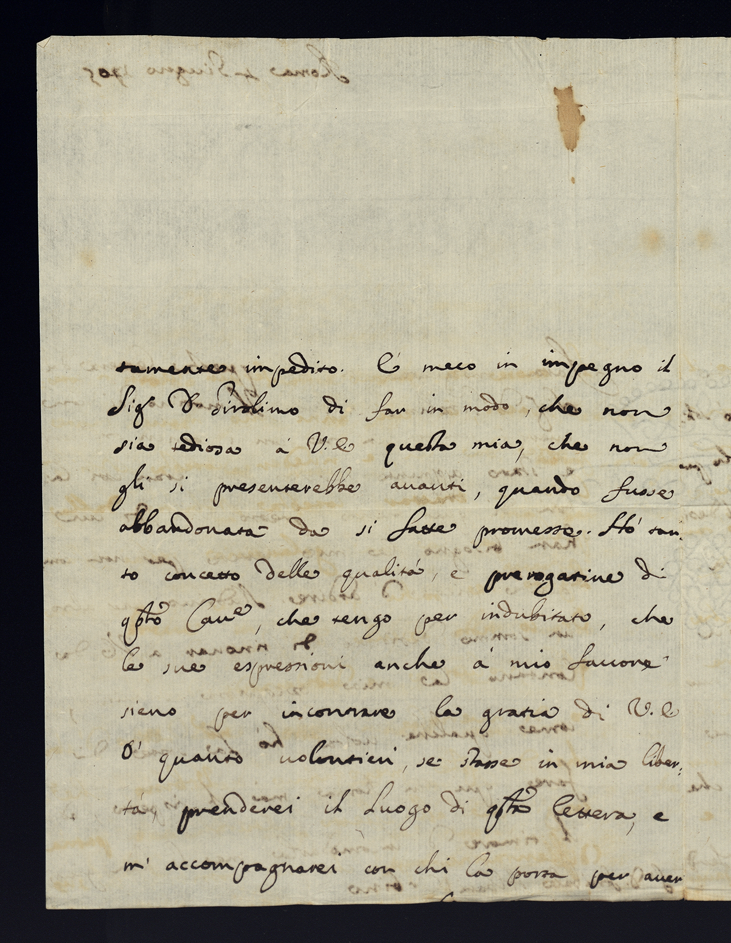 tamente impedito. È meco in impegno il
Sigr D Girolimo di far in modo, che non
sia tediosa à V.E questa mia, che non
gli si presenterebbe avanti, quando fusse
abbandonata da sì fatte promesse. Hò tan:
to concetto delle qualità, e prerogative di
qsto Cave, che tengo per indubitato, che
le sue espressioni anche à mio favore
sieno per incontrare la gratia di V.E
O' quanto volontieri, se stasse in mia liber:
tà, prenderei il luogo di qsta lettera, e
m' accompagnarei con chi la porta per aver